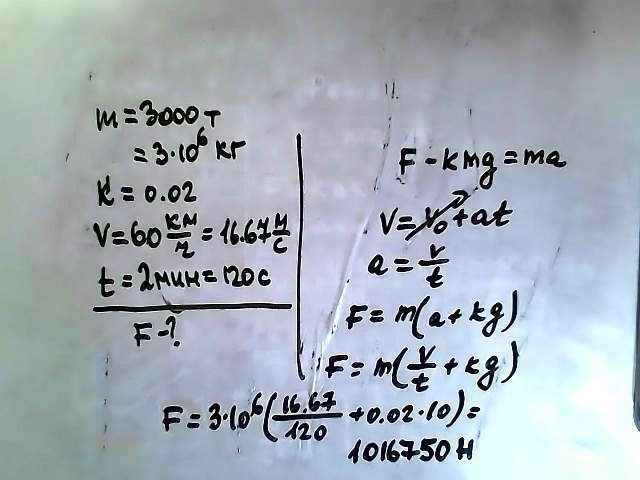 m = 3000 т
= 3·10⁶ кг
k = 0.02
V = 60 км/ч = 16.67 м/с
t = 2 мин = 120 с
F - ?
F - kmg = ma
V = V₀ + at
a = V/t
F = m(a + kg)
F = m(V/t + kg)
F = 3·10⁶(16.67/120 + 0.02·10) =
1016750 Н